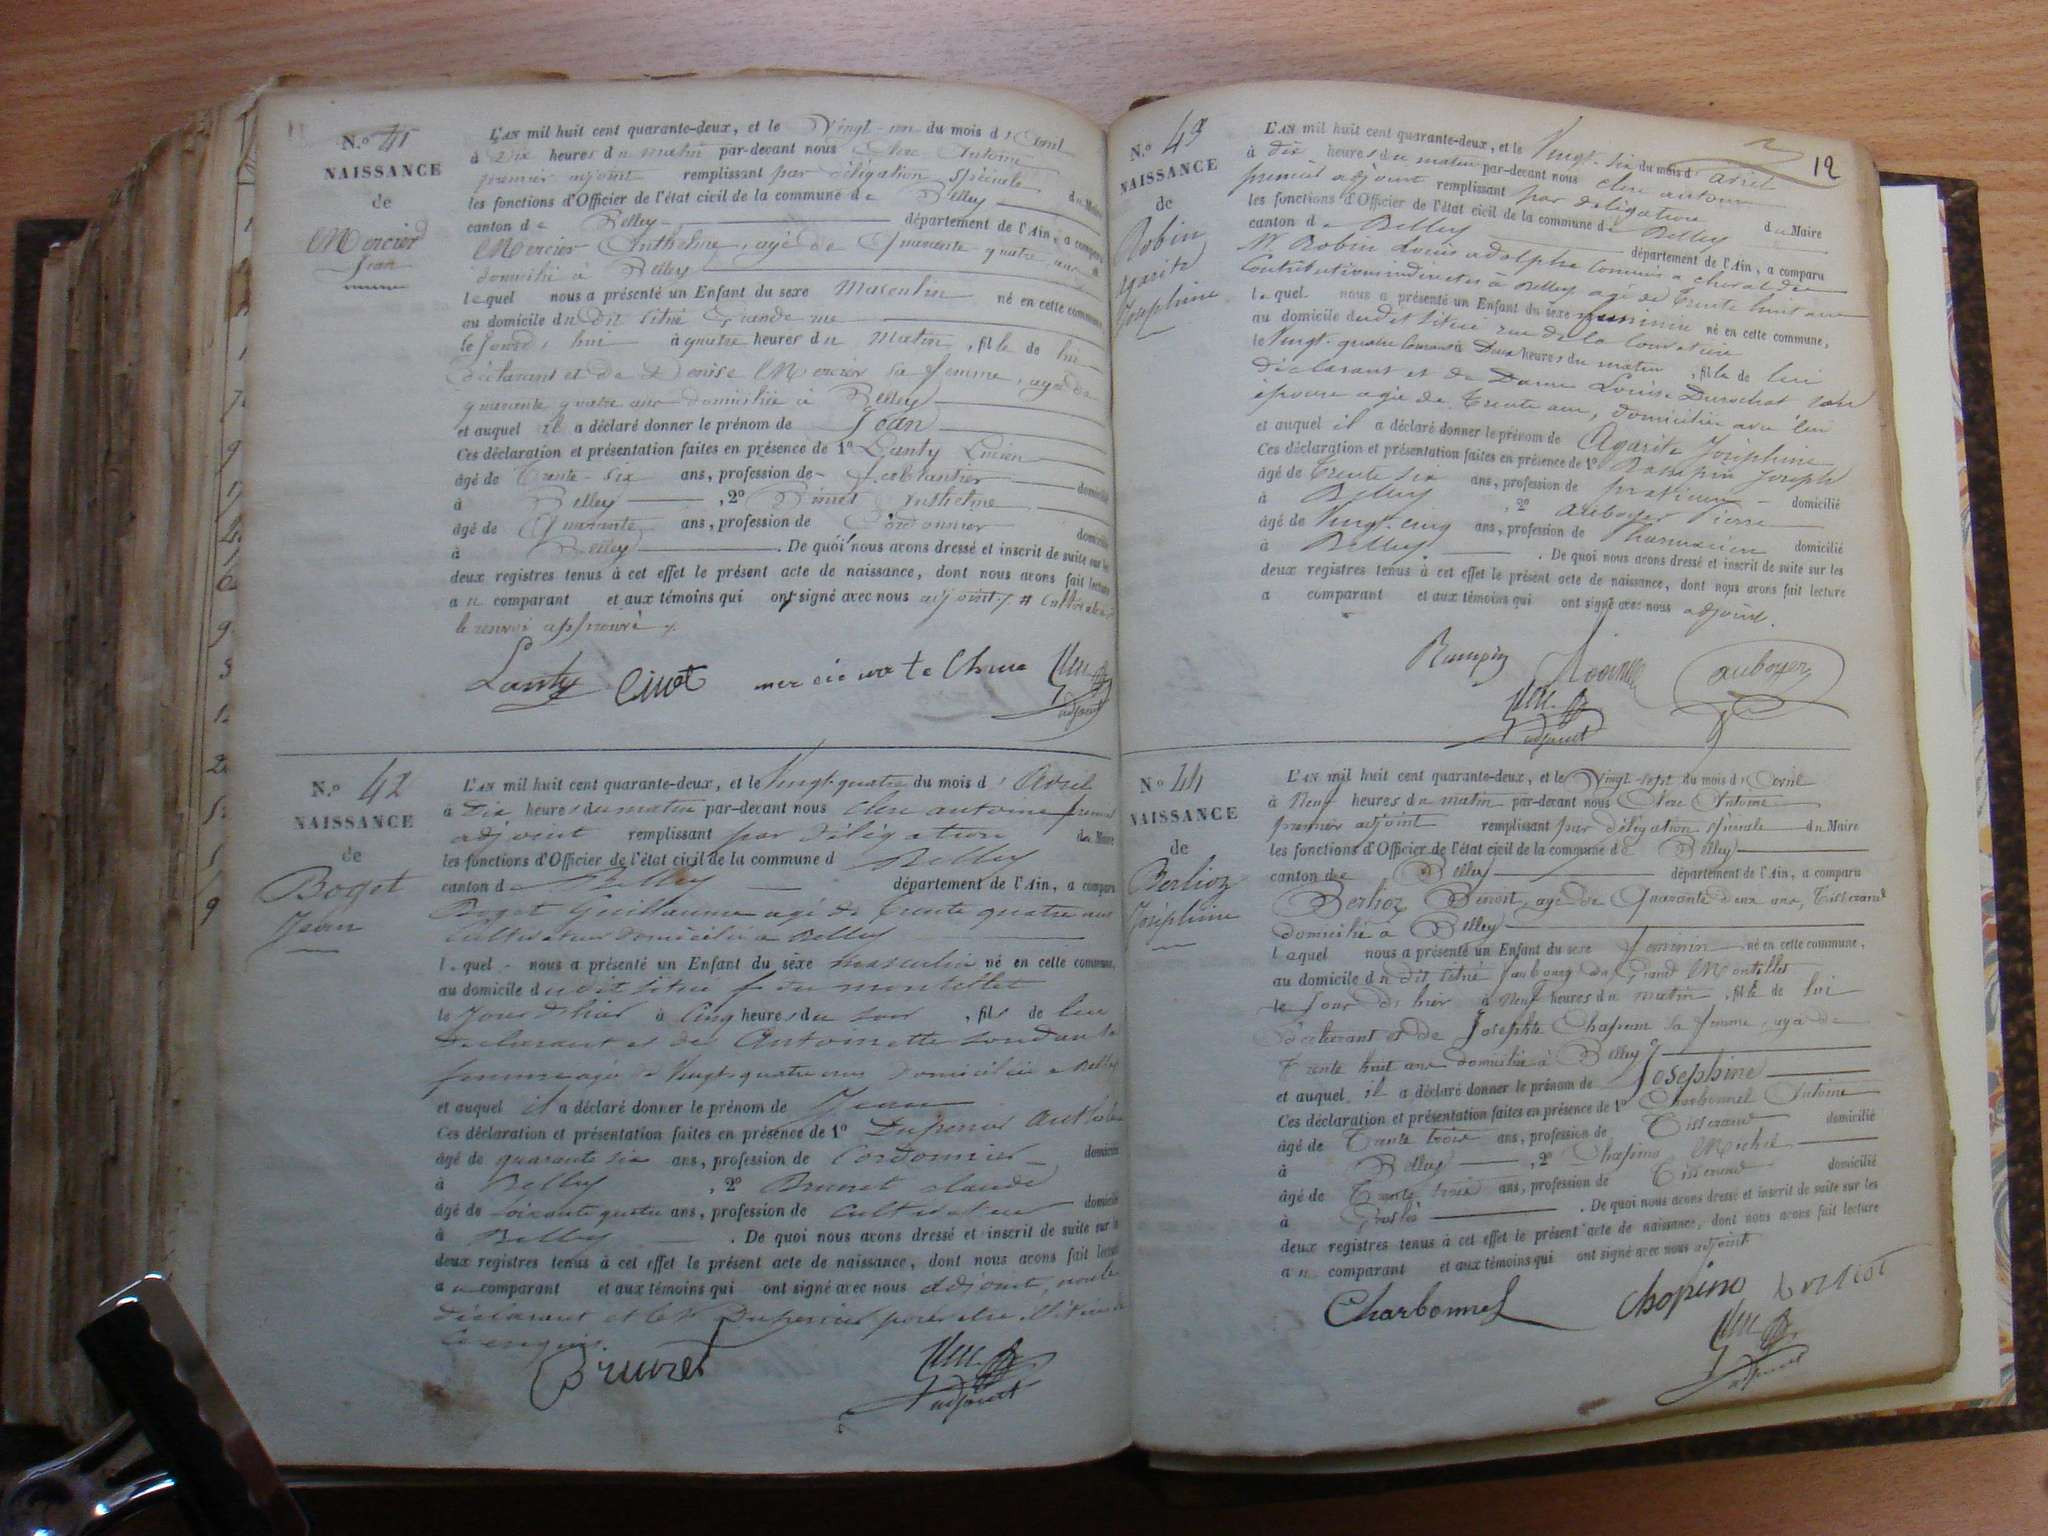 N.o 41
NAISSANCE
de
Mercier
Jean
L'AN mil huit cent quarante-deux, et le Vingt-un du mois d'Avril
à Dix heures du matin par-devant nous Clerc Antoine
premier adjoint remplissant par délégation spéciale du Maire
les fonctions d'Officier de l'état civil de la commune de Belley
canton de Belley département de l'Ain, a comparu
Mercier Anthelme, agé de Quarante quatre ans #
domicilié à Belley
lequel nous a présenté un Enfant du sexe Masculin né en cette commune,
au domicile du dit situé Grande rue
le jourd'hui à quatre heures du Matin, fils de lui
déclarant et de Denise Mercier sa femme, agée de
quarante quatre ans domiciliée à Belley
et auquel il a déclaré donner le prénom de Jean
Ces déclaration et présentation faites en présence de 1o Lanty Lucien
âgé de Trente-six ans, profession de Ferblantier domicilié
à Belley, 2o Anthelme
âgé de Quarante ans, profession de Cordonnier domicilié
à Belley. De quoi nous avons dressé et inscrit de suite sur les
deux registres tenus à cet effet le présent acte de naissance, dont nous avons fait lecture
au comparant et aux témoins qui ont signé avec nous adjoint. # cultivateur
le renvoi approuvé
Lanty mercier anthelme
adjoint
N.o 42
NAISSANCE
de
Bogot
Jean
L'AN mil huit cent quarante-deux, et le Vingt-quatre du mois d'Avril
à Dix heures du matin par-devant nous Clerc antoine premier
adjoint remplissant par délégation du Maire
les fonctions d'Officier de l'état civil de la commune d Belley
canton de Belley département de l'Ain, a comparu
Bogot Guillaume agé de trente quatre ans
Cultivateur domicilié à Belley
lequel nous a présenté un Enfant du sexe masculin né en cette commune,
au domicile du dit situé f. du montellet
le jour d'hier à Cinq heures du soir, fils de lui
déclarant et de Antoinette sa
femme agée de Vingt quatre ans domiciliée à Belley
et auquel il a déclaré donner le prénom de Jean
Ces déclaration et présentation faites en présence de 1o
âgé de quarante six ans, profession de Cordonnier domicilié
à Belley, 2o Brunet claude
âgé de soixante quatre ans, profession de cultivateur domicilié
à Belley. De quoi nous avons dressé et inscrit de suite sur les
deux registres tenus à cet effet le présent acte de naissance, dont nous avons fait lecture
au comparant et aux témoins qui ont signé avec nous adjoint, non le
déclarant et le pour être illitérés
de ce enquis.
Brunet
adjoint
12
N.o 43
NAISSANCE
de
Robin
Agarite
Josephine
L'AN mil huit cent quarante-deux, et le Vingt-six du mois d'avril
à dix heures du matin par-devant nous clerc antoine
premier adjoint remplissant par délégation du Maire
les fonctions d'Officier de l'état civil de la commune de Belley
canton de Belley département de l'Ain, a comparu
Mr Robin Louis adolphe Commis à cheval des
Contributions indirectes à Belley agé de trente huit ans
lequel nous a présenté un Enfant du sexe feminin né en cette commune,
au domicile dudit situé rue de la
le Vingt-quatre Courant à Deux heures du matin, fille de lui
déclarant et de Dame Louise Durochat son
épouse agée de Trente ans, domiciliée avec lui
et auquel il a déclaré donner le prénom de Agarite Joséphine
Ces déclaration et présentation faites en présence de 1o Rampin Joseph
âgé de trente six ans, profession de praticien domicilié
à Belley, 2o auboyer Pierre
âgé de Vingt-cinq ans, profession de Pharmacien domicilié
à Belley. De quoi nous avons dressé et inscrit de suite sur les
deux registres tenus à cet effet le présent acte de naissance, dont nous avons fait lecture
a comparant et aux témoins qui ont signé avec nous adjoint.
Rampin auboyer
adjoint
N.o 44
NAISSANCE
de
Berlioz
Joséphine
L'AN mil huit cent quarante-deux, et le Vingt-sept du mois d'Avril
à Neuf heures du matin par-devant nous Clerc Antoine
premier adjoint remplissant par délégation spéciale du Maire
les fonctions d'Officier de l'état civil de la commune de Belley
canton de Belley département de l'Ain, a comparu
Berlioz Benoit, agé de Quarante deux ans, Tisserand
domicilié à Belley
laquel nous a présenté un Enfant du sexe feminin né en cette commune,
au domicile du dit situé faubourg du Grand Montellet
le jour d'hier à Neuf heures du matin, fille de lui
déclarant et de Josephte sa femme, agée de
Trente huit ans domiciliée à Belley
et auquel il a déclaré donner le prénom de Joséphine
Ces déclaration et présentation faites en présence de 1o Charbonnel Antoine
âgé de Trente trois ans, profession de Tisserand domicilié
à Belley, 2o Chapino Michel
âgé de Trente trois ans, profession de Tisserand domicilié
à. De quoi nous avons dressé et inscrit de suite sur les
deux registres tenus à cet effet le présent acte de naissance, dont nous avons fait lecture
au comparant et aux témoins qui ont signé avec nous adjoint
Charbonnel Chopino
adjoint